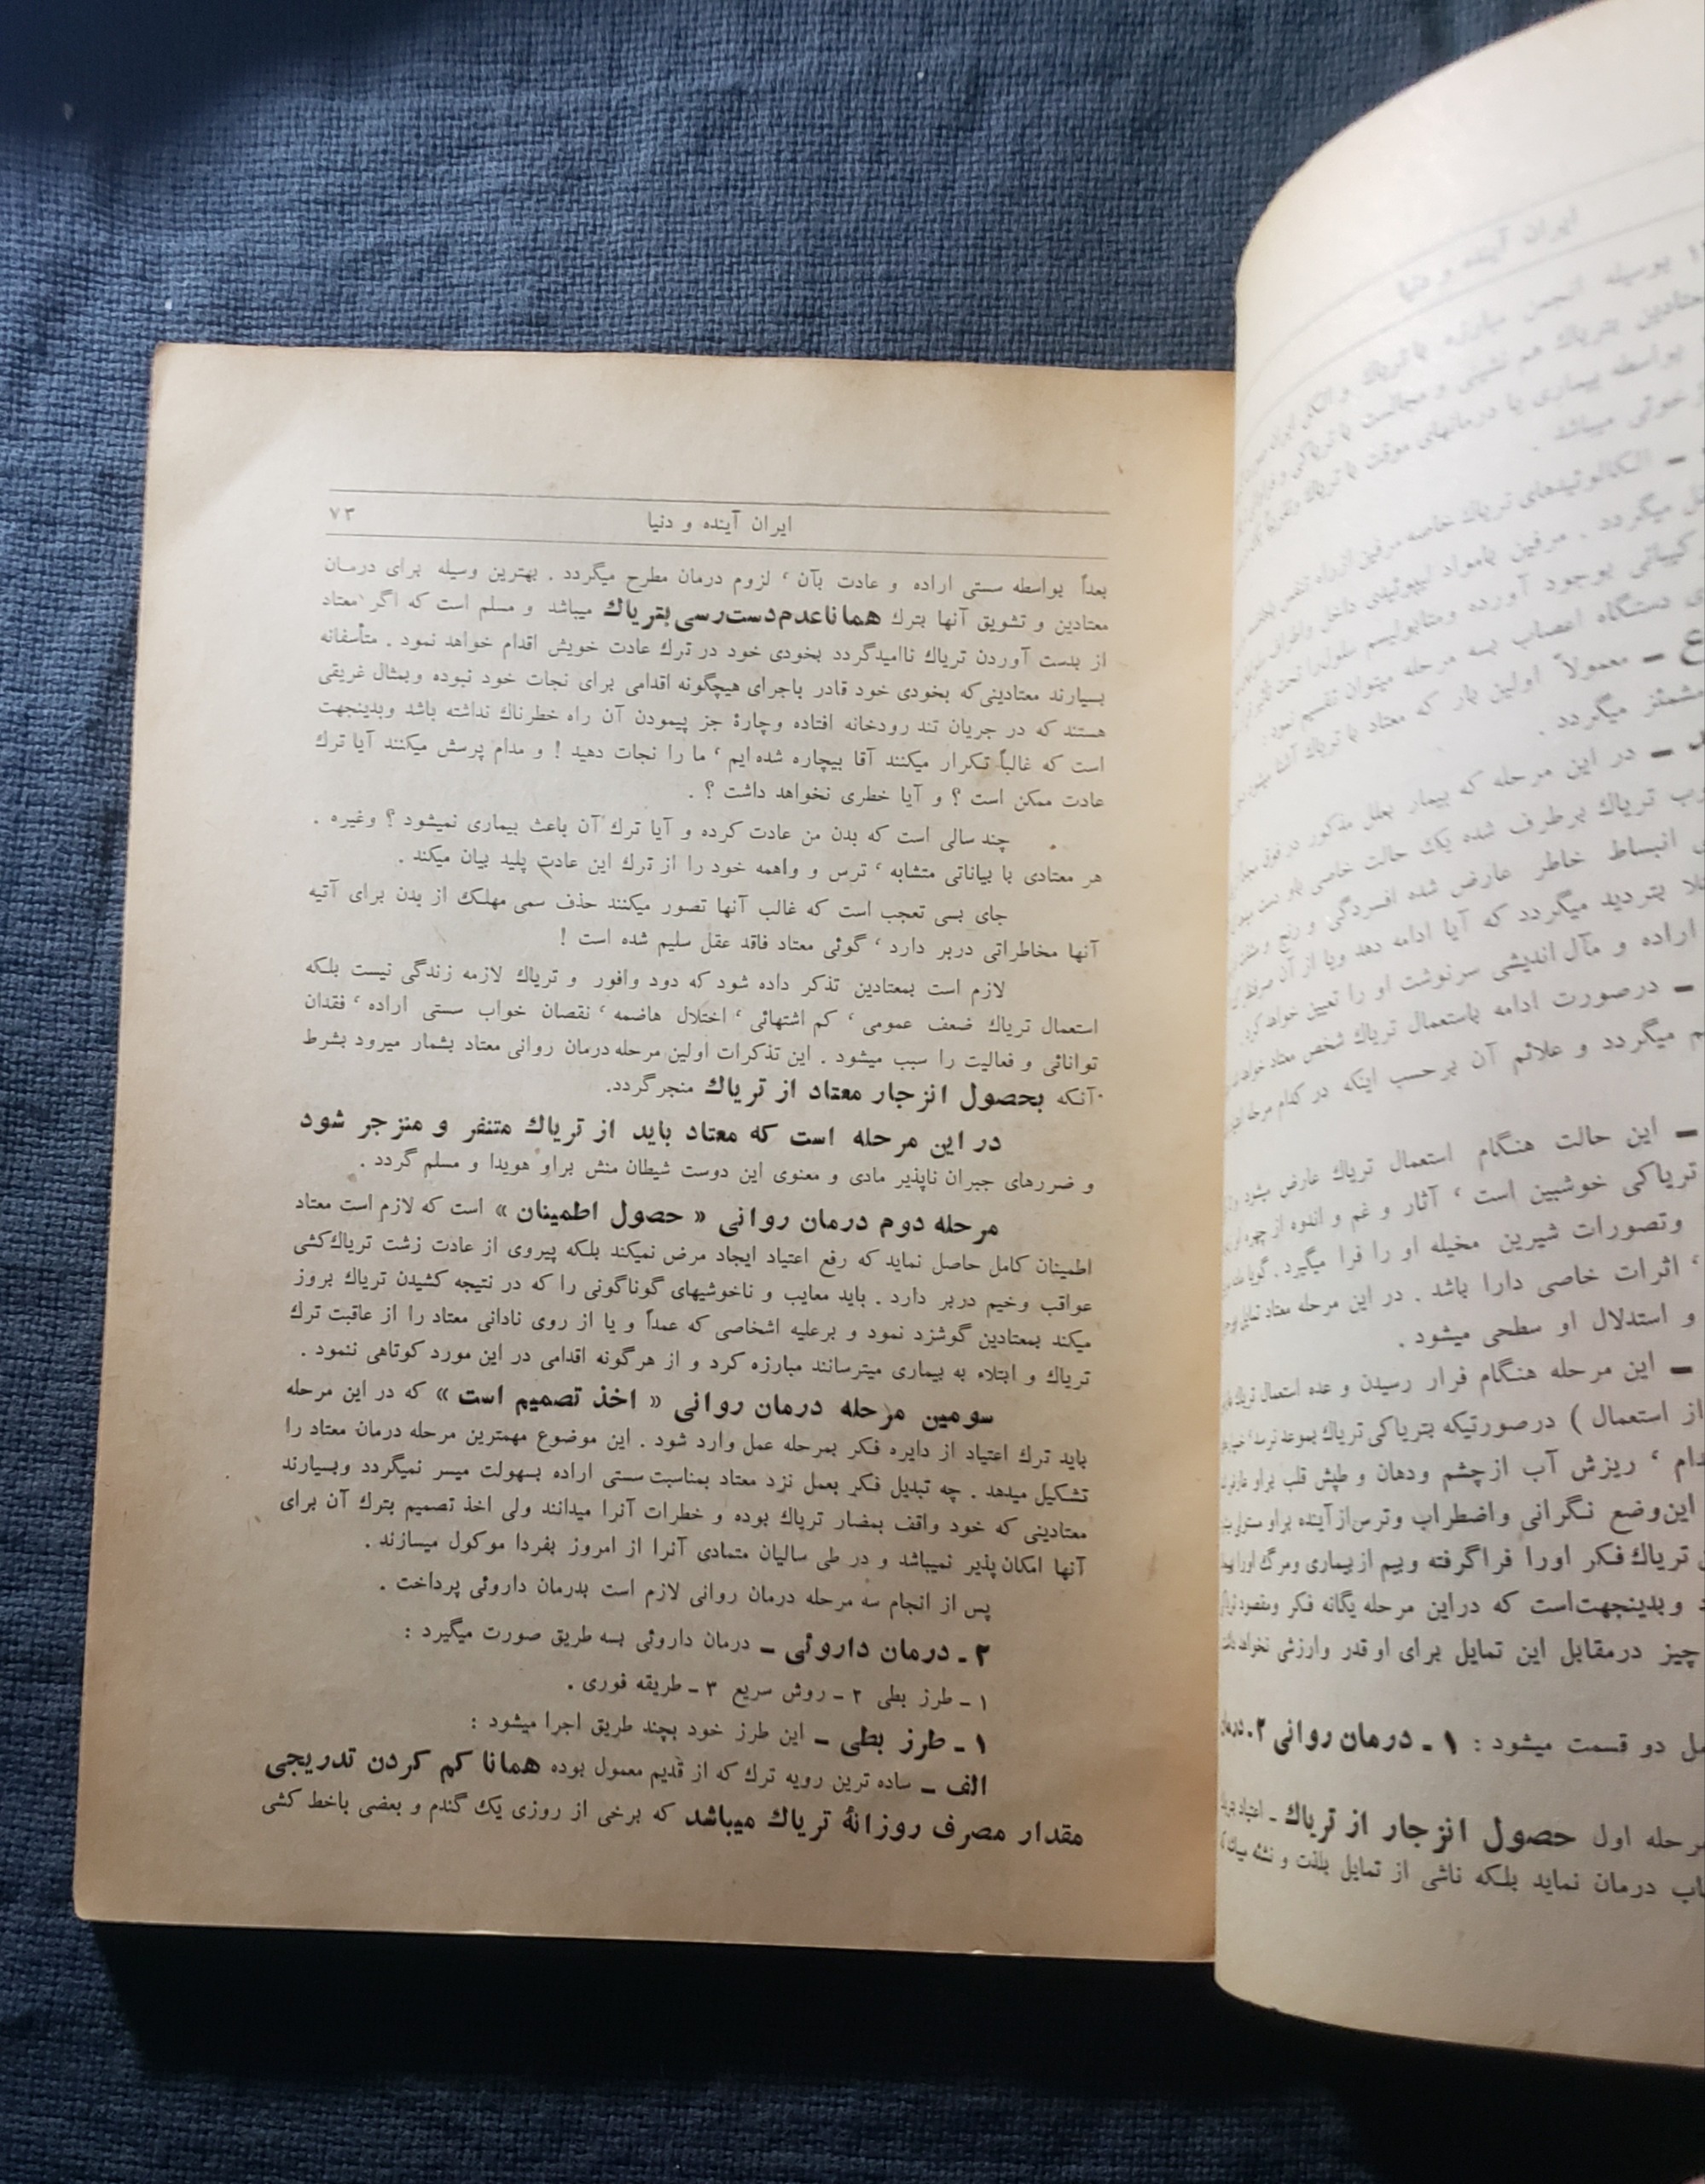 ایران آینده و دنیا
۷۳
بعداً بواسطه سستی اراده و عادت بآن ٬ لزوم درمان مطرح میگردد . بهترین وسیله برای درمان
معتادین و تشویق آنها بترك همانا عدم دست‌رسی بتریاك میباشد و مسلم است که اگر معتاد
از بدست آوردن تریاك ناامیدگردد بخودی خود در ترك عادت خویش اقدام خواهد نمود . متأسفانه
بسیارند معتادینی‌که بخودی خود قادر باجرای هیچگونه اقدامی برای نجات خود نبوده وبمثال غریقی
هستند که در جریان تند رودخانه افتاده وچارهٔ جز پیمودن آن راه خطرناك نداشته باشد وبدینجهت
است که غالباً تکرار میکنند آقا بیچاره شده‌ایم ٬ ما را نجات دهید ! و مدام پرسش میکنند آیا ترك
عادت ممکن است ؟ و آیا خطری نخواهد داشت ؟ .
چند سالی است که بدن من عادت کرده و آیا ترك آن باعث بیماری نمیشود ؟ وغیره .
هر معتادی با بیاناتی متشابه ٬ ترس و واهمه خود را از ترك این عادت پلید بیان میکند .
جای بسی تعجب است که غالب آنها تصور میکنند حذف سمی مهلك از بدن برای آتیه
آنها مخاطراتی دربر دارد ٬ گوئی معتاد فاقد عقل سلیم شده است !
لازم است بمعتادین تذکر داده شود که دود وافور و تریاك لازمه زندگی نیست بلکه
استعمال تریاك ضعف عمومی ٬ کم اشتهائی ٬ اختلال هاضمه ٬ نقصان خواب سستی اراده ٬ فقدان
توانائی و فعالیت را سبب میشود . این تذکرات اولین مرحله درمان روانی معتاد بشمار میرود بشرط
آنکه بحصول انزجار معتاد از تریاك منجرگردد.
در این مرحله است که معتاد باید از تریاك متنفر و منزجر شود
و ضررهای جبران ناپذیر مادی و معنوی این دوست شیطان منش براو هویدا و مسلم گردد .
مرحله دوم درمان روانی « حصول اطمینان » است که لازم است معتاد
اطمینان کامل حاصل نماید که رفع اعتیاد ایجاد مرض نمیکند بلکه پیروی از عادت زشت تریاك‌کشی
عواقب وخیم دربر دارد . باید معایب و ناخوشیهای گوناگونی را که در نتیجه کشیدن تریاك بروز
میکند بمعتادین گوشزد نمود و برعلیه اشخاصی که عمداً و یا از روی نادانی معتاد را از عاقبت ترك
تریاك و ابتلاء به بیماری میترسانند مبارزه کرد و از هرگونه اقدامی در این مورد کوتاهی ننمود .
سومین مرحله درمان روانی « اخذ تصمیم است » که در این مرحله
باید ترك اعتیاد از دایره فکر بمرحله عمل وارد شود . این موضوع مهمترین مرحله درمان معتاد را
تشکیل میدهد . چه تبدیل فکر بعمل نزد معتاد بمناسبت سستی اراده بسهولت میسر نمیگردد وبسیارند
معتادینی که خود واقف بمضار تریاك بوده و خطرات آنرا میدانند ولی اخذ تصمیم بترك آن برای
آنها امکان‌پذیر نمیباشد و در طی سالیان متمادی آنرا از امروز بفردا موکول میسازند .
پس از انجام سه مرحله درمان روانی لازم است بدرمان داروئی پرداخت .
۲ـ درمان داروئی ـ درمان داروئی بسه طریق صورت میگیرد :
۱ ـ طرز بطی ۲ ـ روش سریع ۳ ـ طریقه فوری .
۱ ـ طرز بطی ـ این طرز خود بچند طریق اجرا میشود :
الف ـ ساده ترین رویه ترك که از قدیم معمول بوده همانا کم کردن تدریجی
مقدار مصرف روزانهٔ تریاك میباشد که برخی از روزی یك گندم و بعضی باخط کشی
ایران آینده و دنیا
بوسیله انجمن مبارزه با تریاك و الکل
بتریاك هم نشینی و مجالست با تریاکی
بواسطه بیماری یا درمانهای موقت با تریاك
خوئی میباشد .
ـ الکالوئیدهای تریاك خاصه مرفین از راه تنفس
میگردد . مرفین بامواد لیپوئیدی داخل
بوجود آورده ومتابولیسم سلول را تحت
دستگاه اعصاب بسه مرحله میتوان تقسیم نمود :
ـ معمولاً اولین بار که معتاد با تریاك آشنا
میگردد .
ـ در این مرحله که بیمار بعلل مذکور در فوق
تریاك برطرف شده یك حالت خاصی باو دست
انبساط خاطر عارض شده افسردگی و رنج
بتردید میگردد که آیا ادامه دهد ویا از آن
اراده و مآل‌اندیشی سرنوشت او را تعیین خواهد کرد
ـ درصورت ادامه باستعمال تریاك شخص معتاد
میگردد و علائم آن برحسب اینکه در کدام مرحله
ـ این حالت هنگام استعمال تریاك عارض میشود
تریاکی خوشبین است ٬ آثار و غم و اندوه از چهره
وتصورات شیرین مخیله او را فرا میگیرد . گویا
٬ اثرات خاصی دارا باشد . در این مرحله معتاد
و استدلال او سطحی میشود .
ـ این مرحله هنگام فرار رسیدن و عده استعمال
از استعمال ) درصورتیکه بتریاکی تریاك بموعد نرسد
٬ ریزش آب ازچشم ودهان و طپش قلب براو
این‌وضع نگرانی واضطراب وترس‌ازآینده براو
تریاك فکر اورا فراگرفته وبیم ازبیماری ومرگ اورا
وبدینجهت‌است که دراین مرحله یگانه فکر ومقصود
چیز درمقابل این تمایل برای او قدر وارزشی نخواهد
دو قسمت میشود : ۱ ـ درمان روانی ۲ـ
اول حصول انزجار از تریاك ـ
درمان نماید بلکه ناشی از تمایل بلذت و نشئه